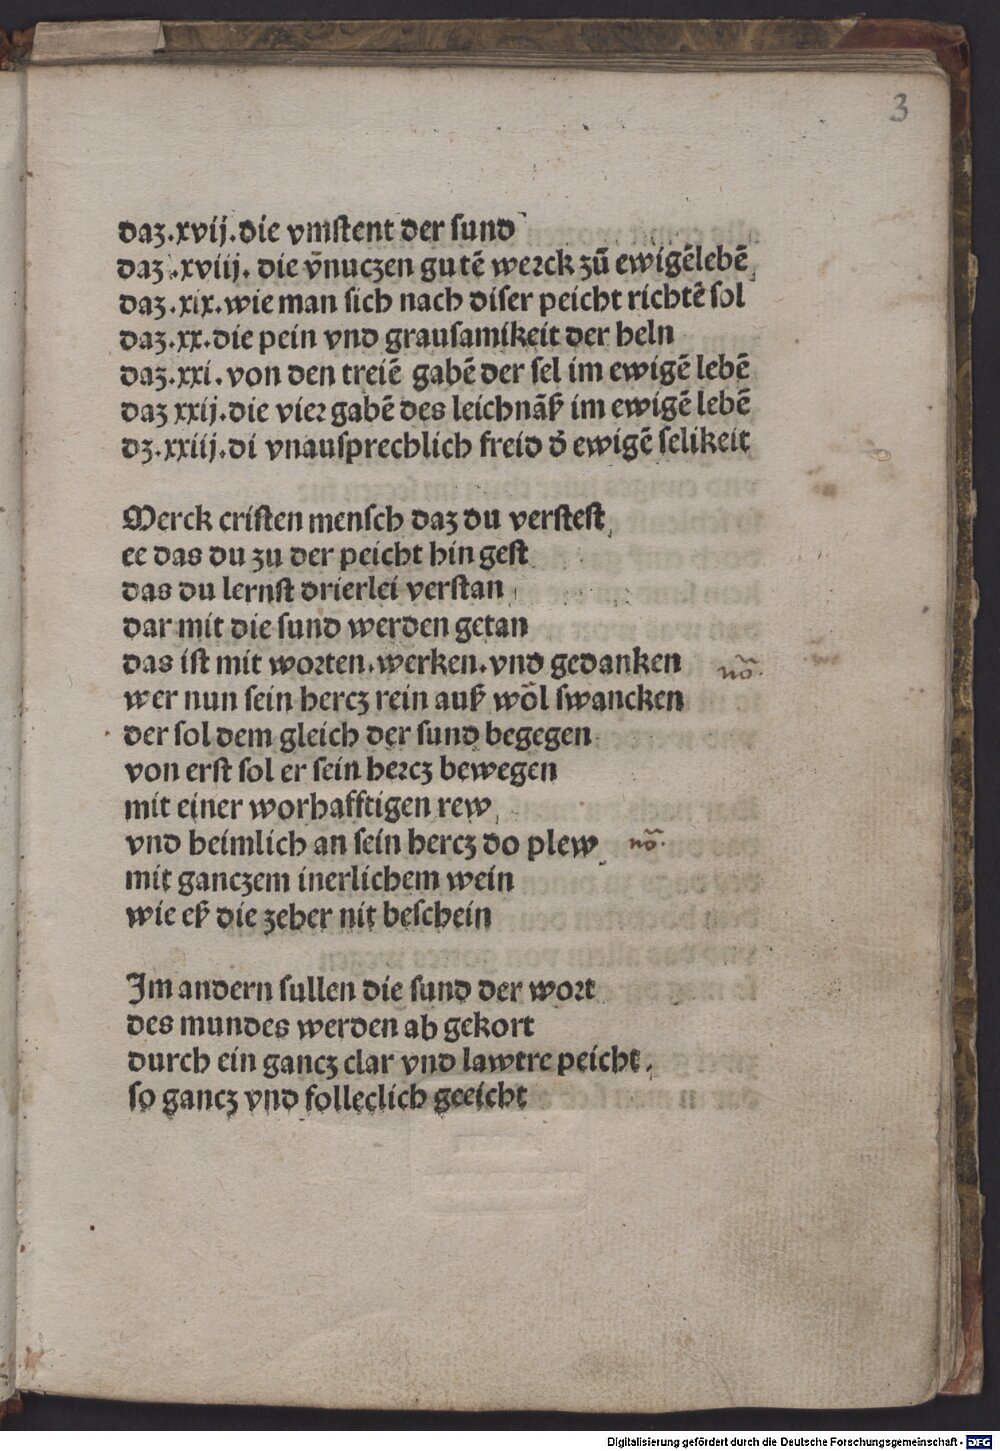 3
daz.xvij.die vmſtent der ſund
daz.xviij. die v̄nuczen gutē werck zū ewigēlebē
daz.xix.wie man ſich nach diſer peicht richtē ſol
daz.xx.die pein vnd grauſamikeit der heln
daz.xxi.von den treiē gabē der ſel im ewigē lebē
daz xxij.die vier gabē des leichnāß im ewigē lebē
dz.xxiij.di vnauſprechlich freid d̄ ewigē ſelikeit
Merck criſten menſch daz du verſteſt
ee das du zu der peicht hin geſt
das du lernſt drierlei verſtan
dar mit die ſund werden getan
das iſt mit worten.werken.vnd gedanken
nō.
wer nun ſein hercz rein auß wōl ſwancken
der ſol dem gleich der ſund begegen
von erſt ſol er ſein hercz bewegen
mit einer worhafftigen rew
vnd heimlich an ſein hercz do plew
nō.
mit ganczem inerlichem wein
wie eß die zeher nit beſchein
Im andern ſullen die ſund der wort
des mundes werden ab gekort
durch ein gancz clar vnd lawtre peicht.
ſo gancz vnd folleclich geeicht
Digitalisierung gefördert durch die Deutsche Forschungsgemeinschaft - DFG